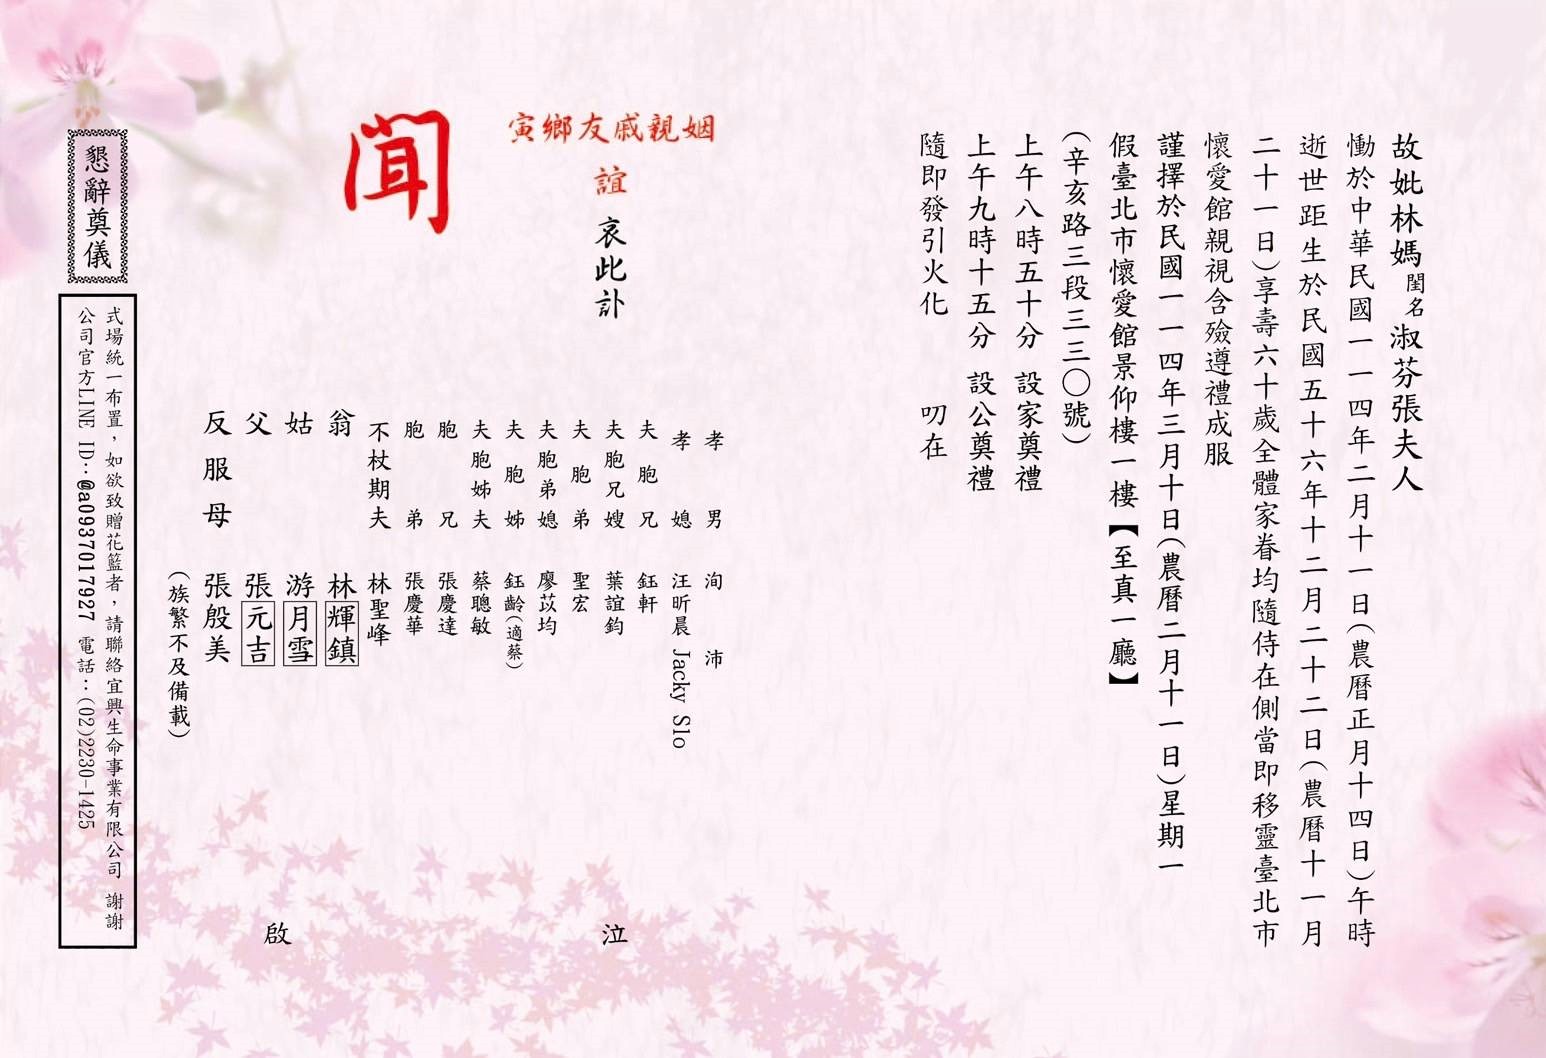 故妣林媽閨名淑芬張夫人
慟於中華民國一一四年二月十一日(農曆正月十四日)午時
逝世距生於民國五十六年十二月二十二日(農曆十一月
二十一日)享壽六十歲全體家眷均隨侍在側當即移靈臺北市
懷愛館親視含殮遵禮成服
謹擇於民國一一四年三月十日(農曆二月十一日)星期一
假臺北市懷愛館景仰樓一樓【至真一廳】
(辛亥路三段三三〇號)
上午八時五十分 設家奠禮
上午九時十五分 設公奠禮
隨即發引火化 叨在
姻親戚友鄉寅
誼 哀此訃
聞
孝男 洵沛
孝媳 汪昕晨 Jacky Slo
夫胞兄 鈺軒
夫胞兄嫂 葉誼鈞
夫胞弟 聖宏
夫胞弟媳 廖苡均
夫胞姊 鈺齡(適蔡)
夫胞姊夫 蔡聰敏
胞兄 張慶達
胞弟 張慶華
不杖期夫 林聖峰
翁 林輝鎮
姑 游月雪
父 張元吉
反服母 張殷美
(族繁不及備載)
泣
啟
懇辭奠儀
式場統一布置，如欲致贈花籃者，請聯絡宜興生命事業有限公司 謝謝
公司官方LINE ID：@a0937017927 電話：(02)2230-1425